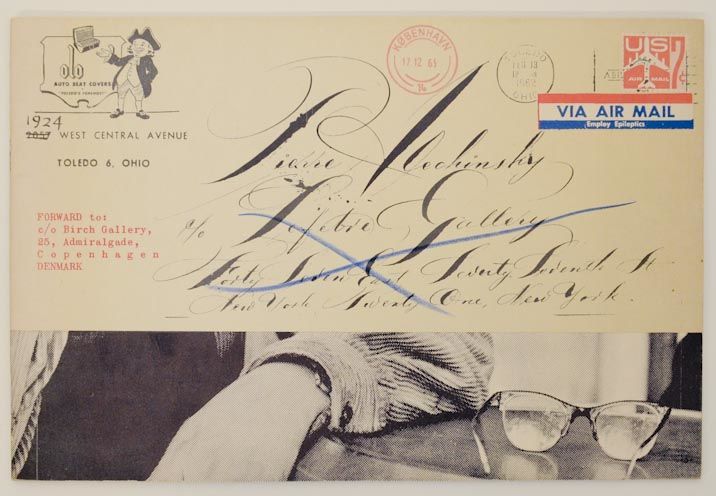 Polo
AUTO SEAT COVERS
"TOLEDO'S FOREMOST"
1924
2057 WEST CENTRAL AVENUE
TOLEDO 6, OHIO
KØBENHAVN
17.12 65
TOLEDO
FEB 13
1962
OHIO
US 7¢
AIR MAIL
VIA AIR MAIL
Employ Epileptics
Pierre Alechinsky
c/o Lefebre Gallery
Forty Seven East Seventy Seventh St
New York Twenty One, New York.
FORWARD to:
c/o Birch Gallery,
25, Admiralgade,
Copenhagen
DENMARK